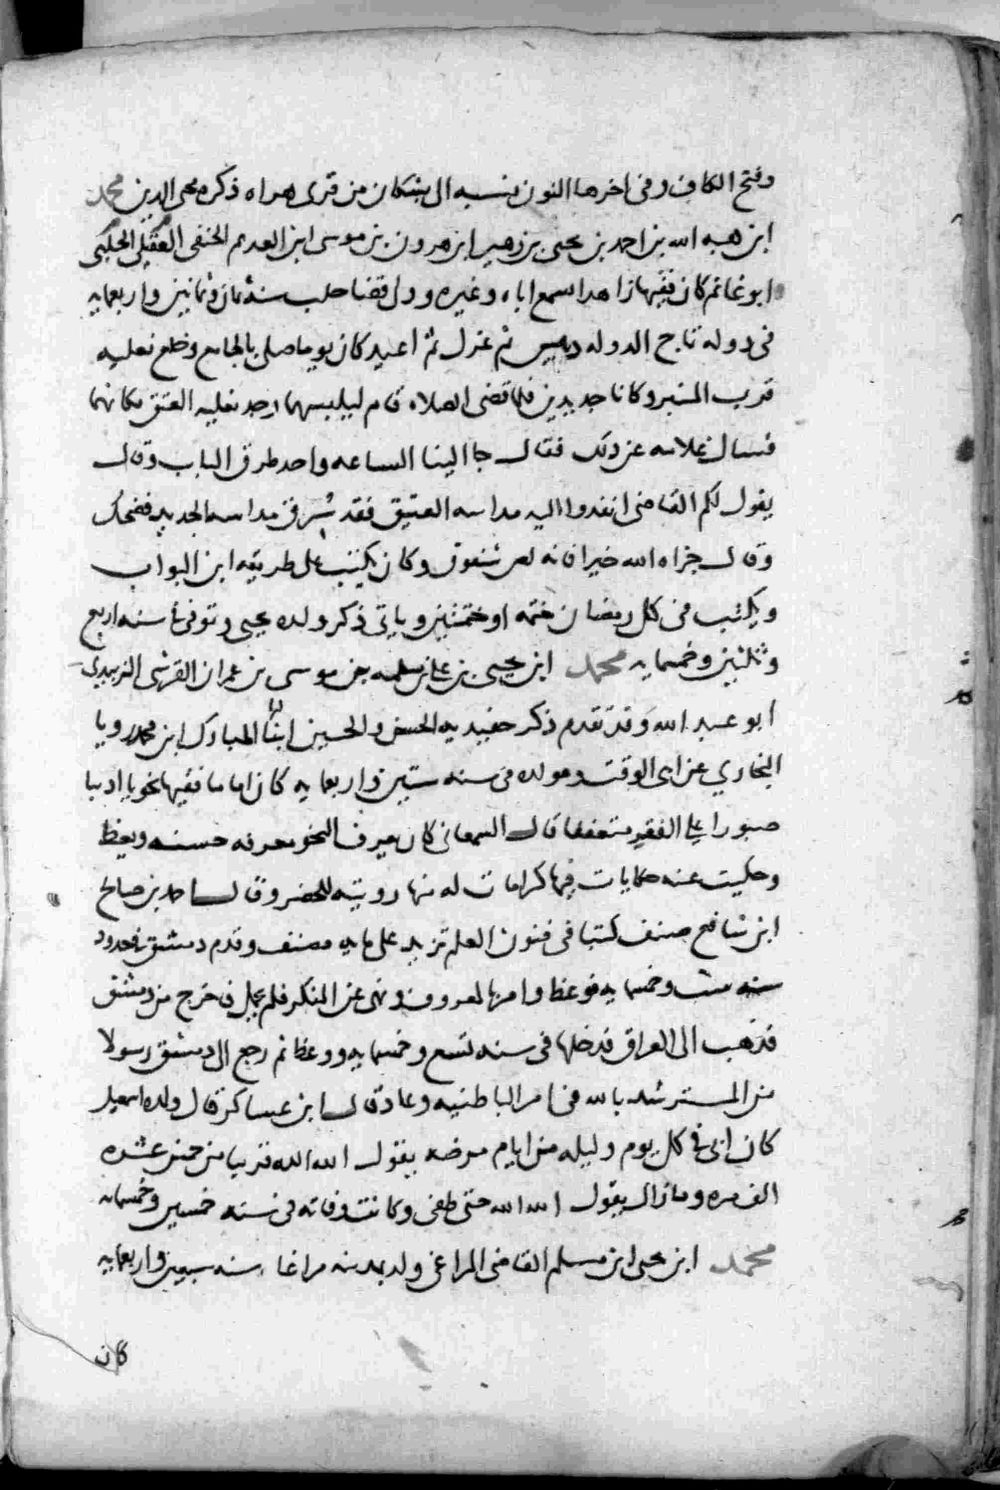 وفتح الكاف وفى اخرها النون نسبه الى بشكان من قرى هراه ذكره محى الدين محمد
ابن هبه الله بن احمد بن يحيى بن زهير ابن هرون بن موسى ابن العديم الحنفى العقيلى الحلبى
ابو غانم كان فقيها زاهدا سمع اباه وغيره وولى قضا حلب سنة ثمان وثمانين واربعمايه
فى دولة تاج الدوله ثم عزل ثم اعيد كان يوما صلى بالجامع وخلع نعليه
قرب المنبر وكانا جديدين فلما قضى الصلاه قام ليلبسهما وجد نعليه العتق مكانهما
فسال غلامه عن ذلك فقال جا الينا الساعه واحد طرق الباب وقال
يقول لكم القاضى انفدوا اليه مداسه العتيق فقد سُرق مداسه الجديد فضحك
وقال جزاه الله خيرا فانه لص شفوق وكان يكتب على طريقه ابن البواب
ويكتب فى كل رمضان ختمه او ختمتين وياتى ذكر ولده يحيى وتوفى سنه اربع
وثلثين وخمسمايه محمد ابن يحيى بن على بن مسلمه بن موسى بن عمران القرشى الزبيدى
ابو عبد الله وقد تقدم ذكر حفيديه الحسن والحسين ابنا المبارك ابن محمد رويا
البخاري عن ابى الوقت ومولده فى سنه ستين واربعمايه كان اماما فقيها نحويا اديبا
صبورا على الفقر متعففا قال السمعانى كان يعرف النحو معرفه حسنه ويعظ
وحكيت عنه حكايات فيها كرامات له منها رويته للخضر وقال احمد بن صالح
ابن شافع صنف كتبا فى فنون العلم تزيد على مايه مصنف وقدم دمشق فى حدود
سنه ست وخمسمايه فوعظ وامر بالمعروف ونهى عن المنكر فلم يحمل فخرج من دمشق
فذهب الى العراق فدخلها فى سنه تسع وخمسمايه ووعظ ثم رجع الى دمشق رسولا
من المسترشد بالله فى امر الباطنيه وعاد قال ابن عساكر قال ولده اسمعيل
كان ابى فى كل يوم وليله من ايام مرضه يقول الله الله قريبا من خمس عشره
الف مره وما زال يقول الله الله حتى طفى وكانت وفاته فى سنه خمسين وخمسمايه
محمد ابن يحيى ابن مسلم القاضى المراغى ولد بمدينه مراغا سنه سبعين واربعمايه
كان